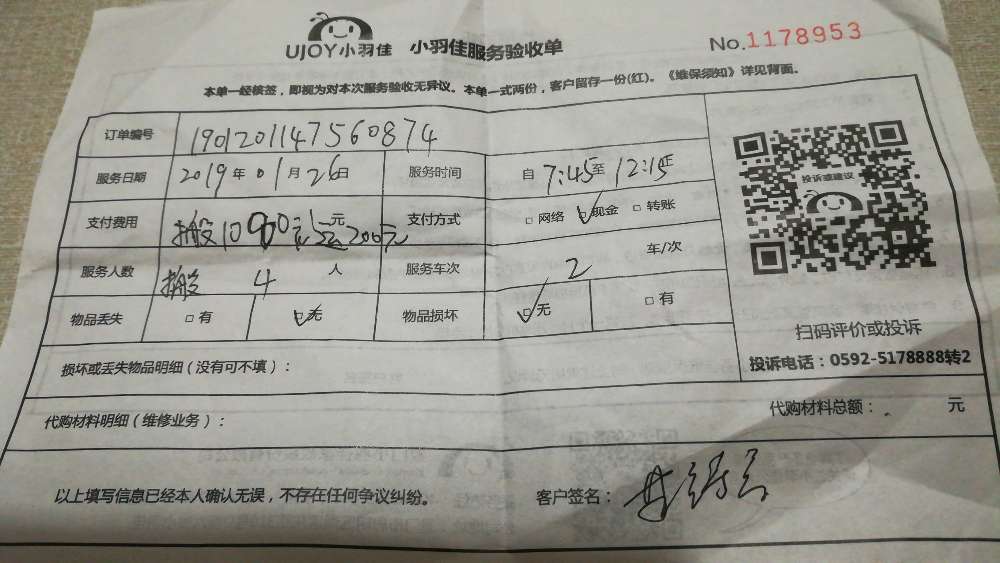 UJOY小羽佳 小羽佳服务验收单 No.1178953
本单一经核签，即视为对本次服务验收无异议。本单一式两份，客户留存一份(红)。《维保须知》详见背面。
订单编号 1901201147560874
服务日期 2019年01月26日 服务时间 自7:45至12:15止
支付费用 搬设1090元 200元 元 支付方式 □网络 ☑现金 □转账
服务人数 4人 服务车次 2 车/次
物品丢失 □有 ☑无 物品损坏 ☑无 □有
投诉或建议
扫码评价或投诉
投诉电话：0592-5178888转2
损坏或丢失物品明细（没有可不填）：
代购材料明细（维修业务）： 代购材料总额： 元
以上填写信息已经本人确认无误，不存在任何争议纠纷。 客户签名：